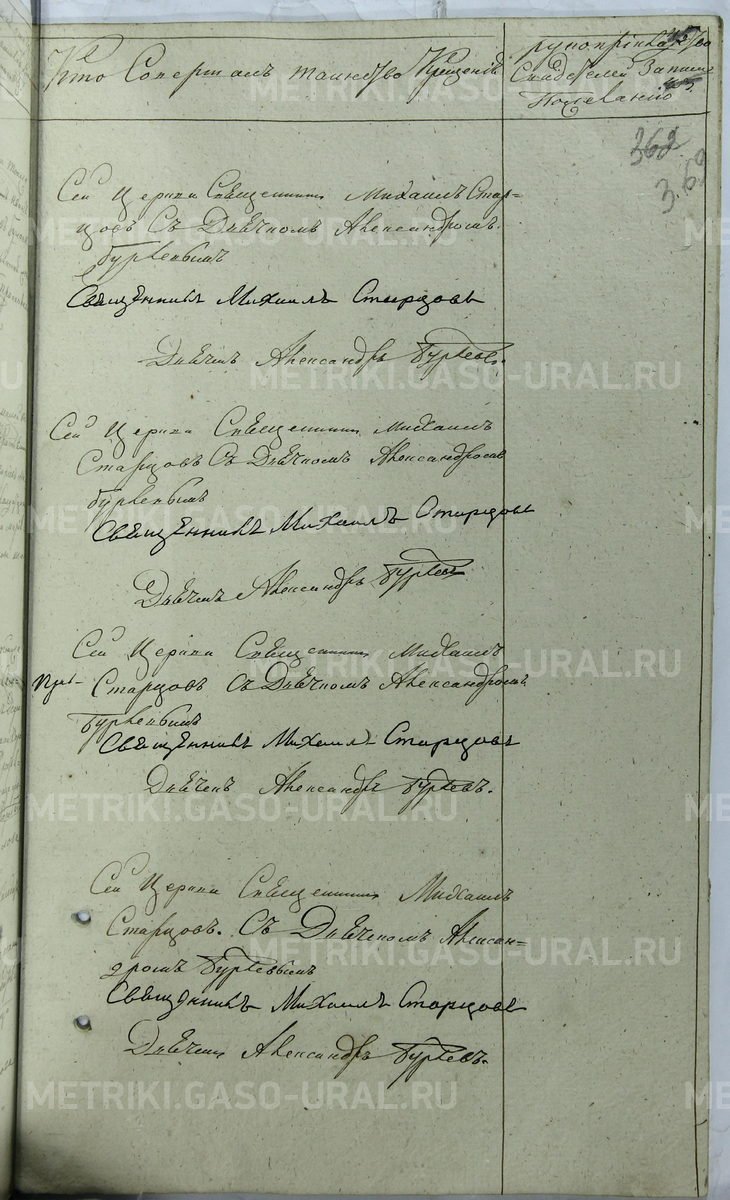 Кто Совершалъ таинство Крещенія
рукоприкладство
Свидѣтелей Записи
По желанію
362
369
Сей Церкви Священникъ Михаилъ Стар=
цовъ Съ Дьячкомъ Александромъ
Бурцевымъ
Священникъ Михаилъ Старцовъ
Дьячекъ Александръ Бурцевъ.
Сей Церкви Священникъ Михаилъ
Старцовъ Съ Дьячкомъ Александромъ
Бурцевымъ
Священникъ Михаилъ Старцовъ
Дьячекъ Александръ Бурцевъ
Сей Церкви Священникъ Михаилъ
Старцовъ Съ Дьячкомъ Александромъ
Бурцевымъ
Священникъ Михаилъ Старцовъ
Дьячекъ Александръ Бурцевъ.
Сей Церкви Священникъ Михаилъ
Старцовъ. Съ Дьячкомъ Алексан=
дромъ Бурцевымъ
Священникъ Михаилъ Старцовъ
Дьячекъ Александръ Бурцевъ.
METRIKI.GASO-URAL.RU